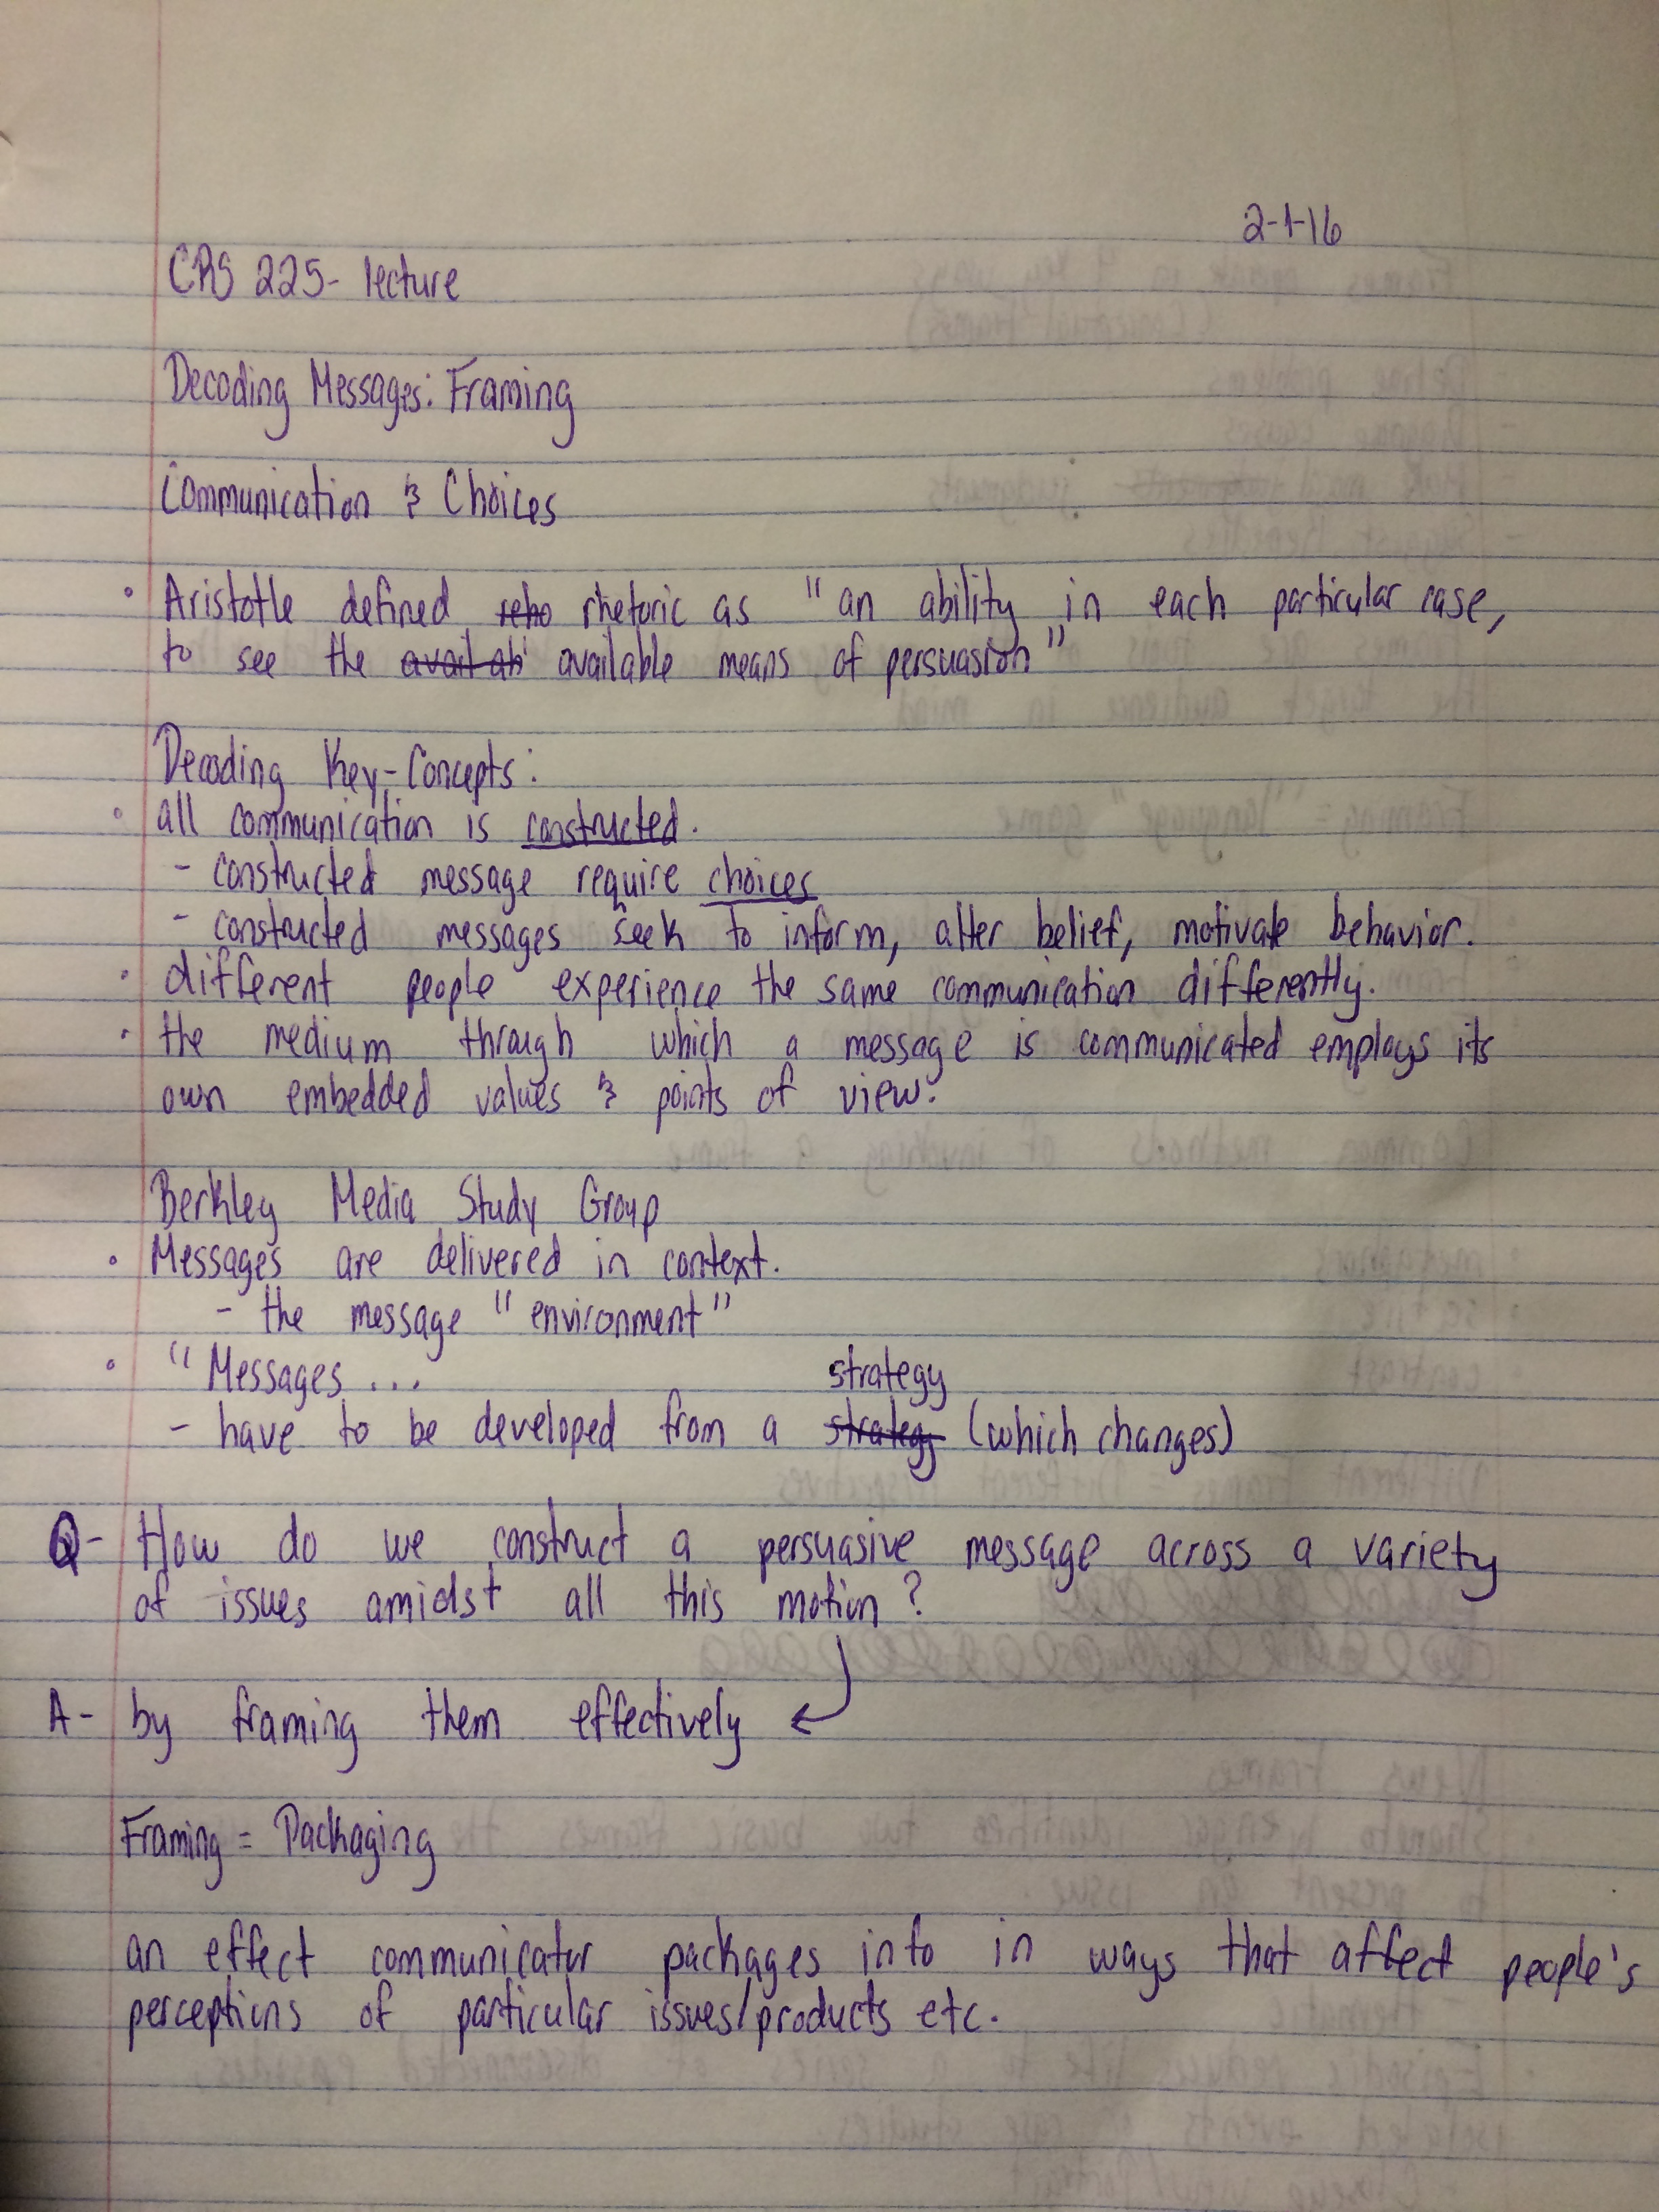 2-1-16
CRS 225- lecture
Decoding Messages: Framing
Communication & Choices
• Aristotle defined reho rhetoric as "an ability in each particular case,
to see the avail ab available means of persuasion"
Decoding Key-Concepts:
• all communication is constructed.
- constructed message require choices
- constructed messages seek to inform, alter belief, motivate behavior.
• different people experience the same communication differently.
• the medium through which a message is communicated employs its
own embedded values & points of view.
Berkley Media Study Group
• Messages are delivered in context.
- the message "environment"
• "Messages ...
strategy
- have to be developed from a strategy (which changes)
Q- How do we construct a persuasive message across a variety
of issues amidst all this motion?
A- by framing them effectively
Framing = Packaging
an effect communicator packages info in ways that affect people's
perceptions of particular issues/products etc.